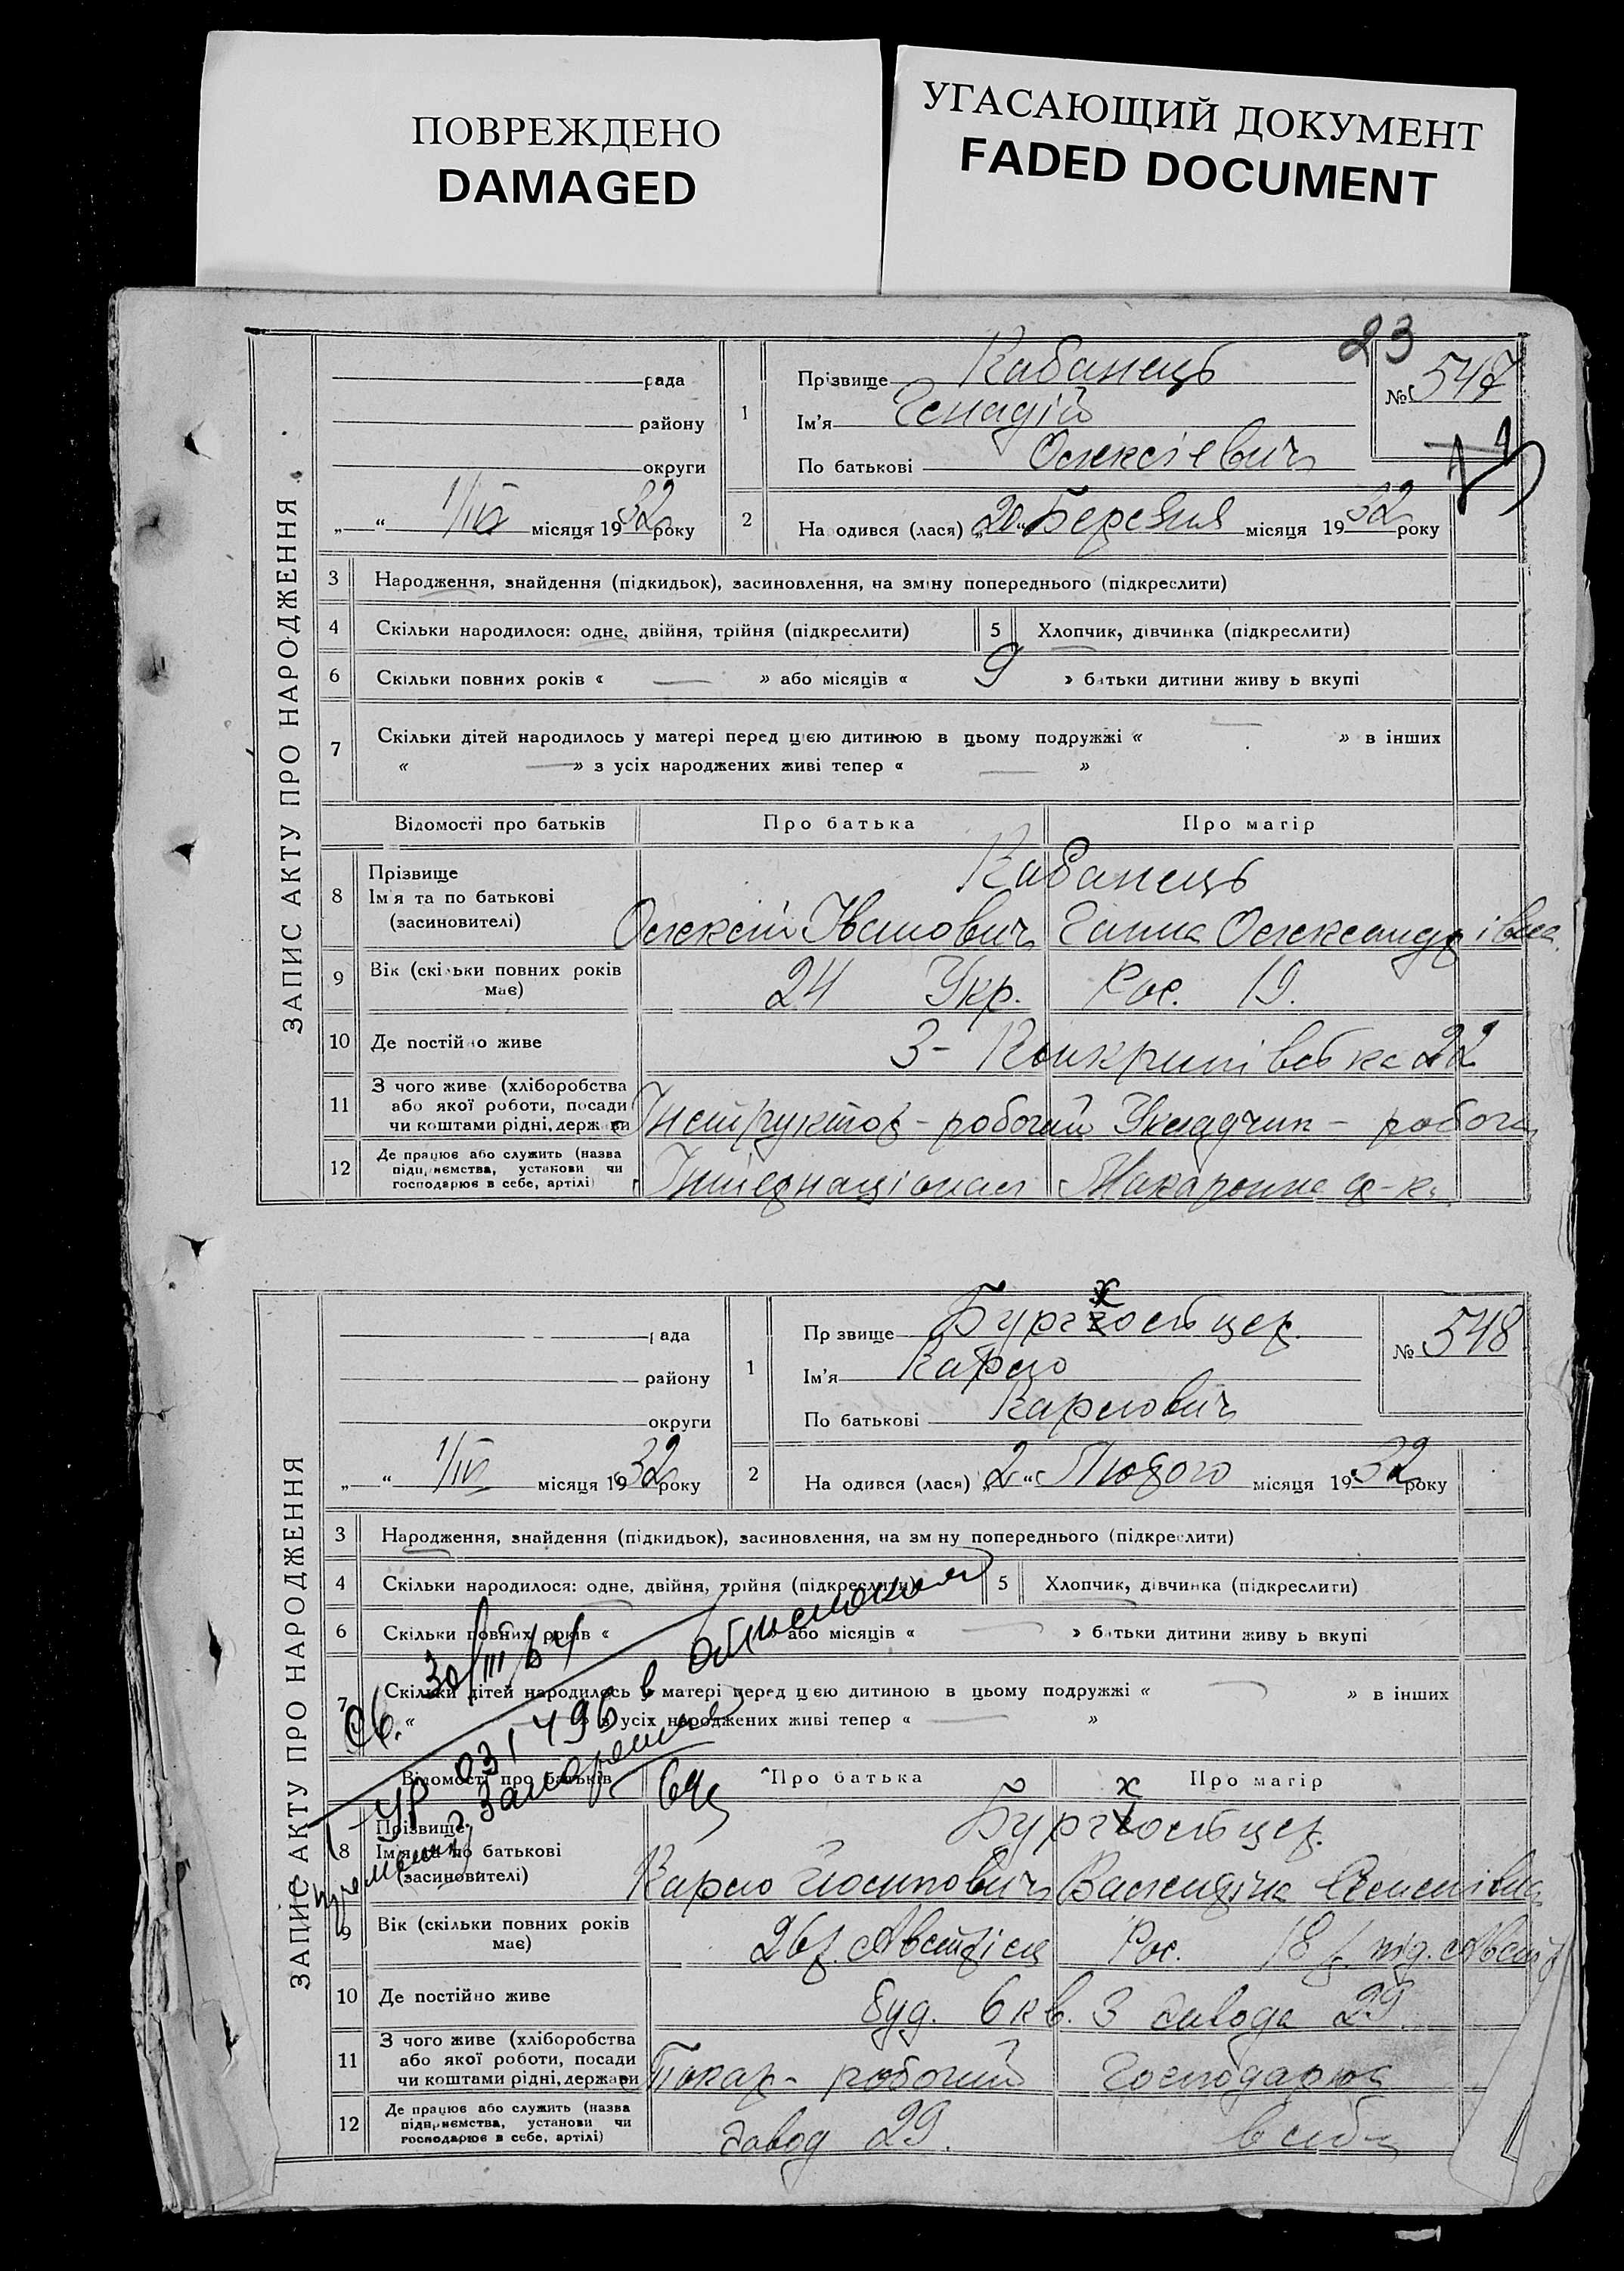 ПОВРЕЖДЕНО
DAMAGED
УГАСАЮЩИЙ ДОКУМЕНТ
FADED DOCUMENT
23
ЗАПИС АКТУ ПРО НАРОДЖЕННЯ
рада
району
округи
„ “ 1/IV місяця 1932 року
1 Прізвище Кабанець
Ім'я Генадій
По батькові Олексієвич
№ 547
2 На одився (лася) „20“ Березня місяця 1932 року
3 Народження, знайдення (підкидьок), засиновлення, на зміну попереднього (підкреслити)
4 Скільки народилося: одне, двійня, трійня (підкреслити) 5 Хлопчик, дівчинка (підкреслити)
6 Скільки повних років « — » або місяців « 9 » батьки дитини живу ь вкупі
7 Скільки дітей народилось у матері перед цією дитиною в цьому подружжі « — » в інших
« — » з усіх народжених живі тепер « — »
Відомості про батьків Про батька Про матір
8 Прізвище Кабанець
Ім'я та по батькові
(засиновителі) Олексій Іванович Ганна Олександрівна
9 Вік (скільки повних років
має) 24 Укр. Рос. 19.
10 Де постійно живе 3- 22
11 З чого живе (хліборобства
або якої роботи, посади
чи коштами рідні, держави Інструктор - робочий Укладчик - робоча
12 Де працює або служить (назва
підприємства, установи чи
господарює в себе, артілі) Інтернаціонал Макаронна ф-ка
ЗАПИС АКТУ ПРО НАРОДЖЕННЯ
рада
району
округи
„ “ 1/IV місяця 1932 року
1 Пр звище Бургхольцер
х
Ім'я Карло
По батькові Карлович
№ 548
2 На одився (лася) „2“ Лютого місяця 1932 року
3 Народження, знайдення (підкидьок), засиновлення, на зм ну попереднього (підкреслити)
4 Скільки народилося: одне, двійня, трійня (підкреслити) 5 Хлопчик, дівчинка (підкреслити)
6 Скільки повних років « або місяців « — » батьки дитини живу ь вкупі
7 Скільки дітей народилось у матері перед цією дитиною в цьому подружжі « — » в інших
« — » з усіх народжених живі тепер « — »
30/III/64
УР 031496
Відомості про батьків Про батька Про матір
8 Прізвище Бургхольцер
х
Ім'я та по батькові
(засиновителі) Карло Йосипович Валендіна Семенівна
9 Вік (скільки повних років
має) 26 р. Австрієц Рос. 18 р. під. Австр
10 Де постійно живе буд. 6 кв. 3 завода 29.
11 З чого живе (хліборобства
або якої роботи, посади
чи коштами рідні, держави Токар- робочий Господарює
12 Де працює або служить (назва
підприємства, установи чи
господарює в себе, артілі) завод 29. в себе